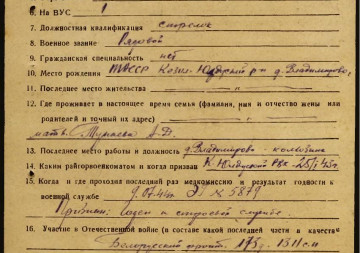 6. На ВУС 1
7. Должностная квалификация стрелок
8. Военное звание Рядовой
9. Гражданская специальность нет
10. Место рождения ТАССР р-н д. Владимирово,
11. Последнее место жительства — „ —
12. Где проживает в настоящее время семья (фамилия, имя и отчество жены или
родителей и точный их адрес)
мать
13. Последнее место работы и должность д. Владимирово - колхозник
14. Каким райгорвоенкоматом и когда призван РВК
15. Когда и где проходил последний раз медкомиссию и результат годности к
военной службе
Признан: годен к строевой службе.
16. Участие в Отечественной войне (в составе какой последней части и в качестве
Белорусский фронт.